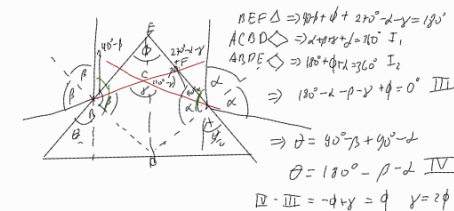 BEF△ ⇒ 90-β + ϕ + 270°-α-γ = 180°
ACBD◇ ⇒ α+β+γ+δ=360° I₁
ABDE◇ ⇒ 180°+ϕ+δ=360° I₂
⇒ 180°-α-β-γ+ϕ=0° III
⇒ θ = 90°-β+90°-α
θ = 180°-β-α IV
IV - III = -ϕ+γ = ϕ γ = 2ϕ
E
90°-β
ϕ
270°-α-γ
F
C
γ
β
β
α
α
B
A
θ
D